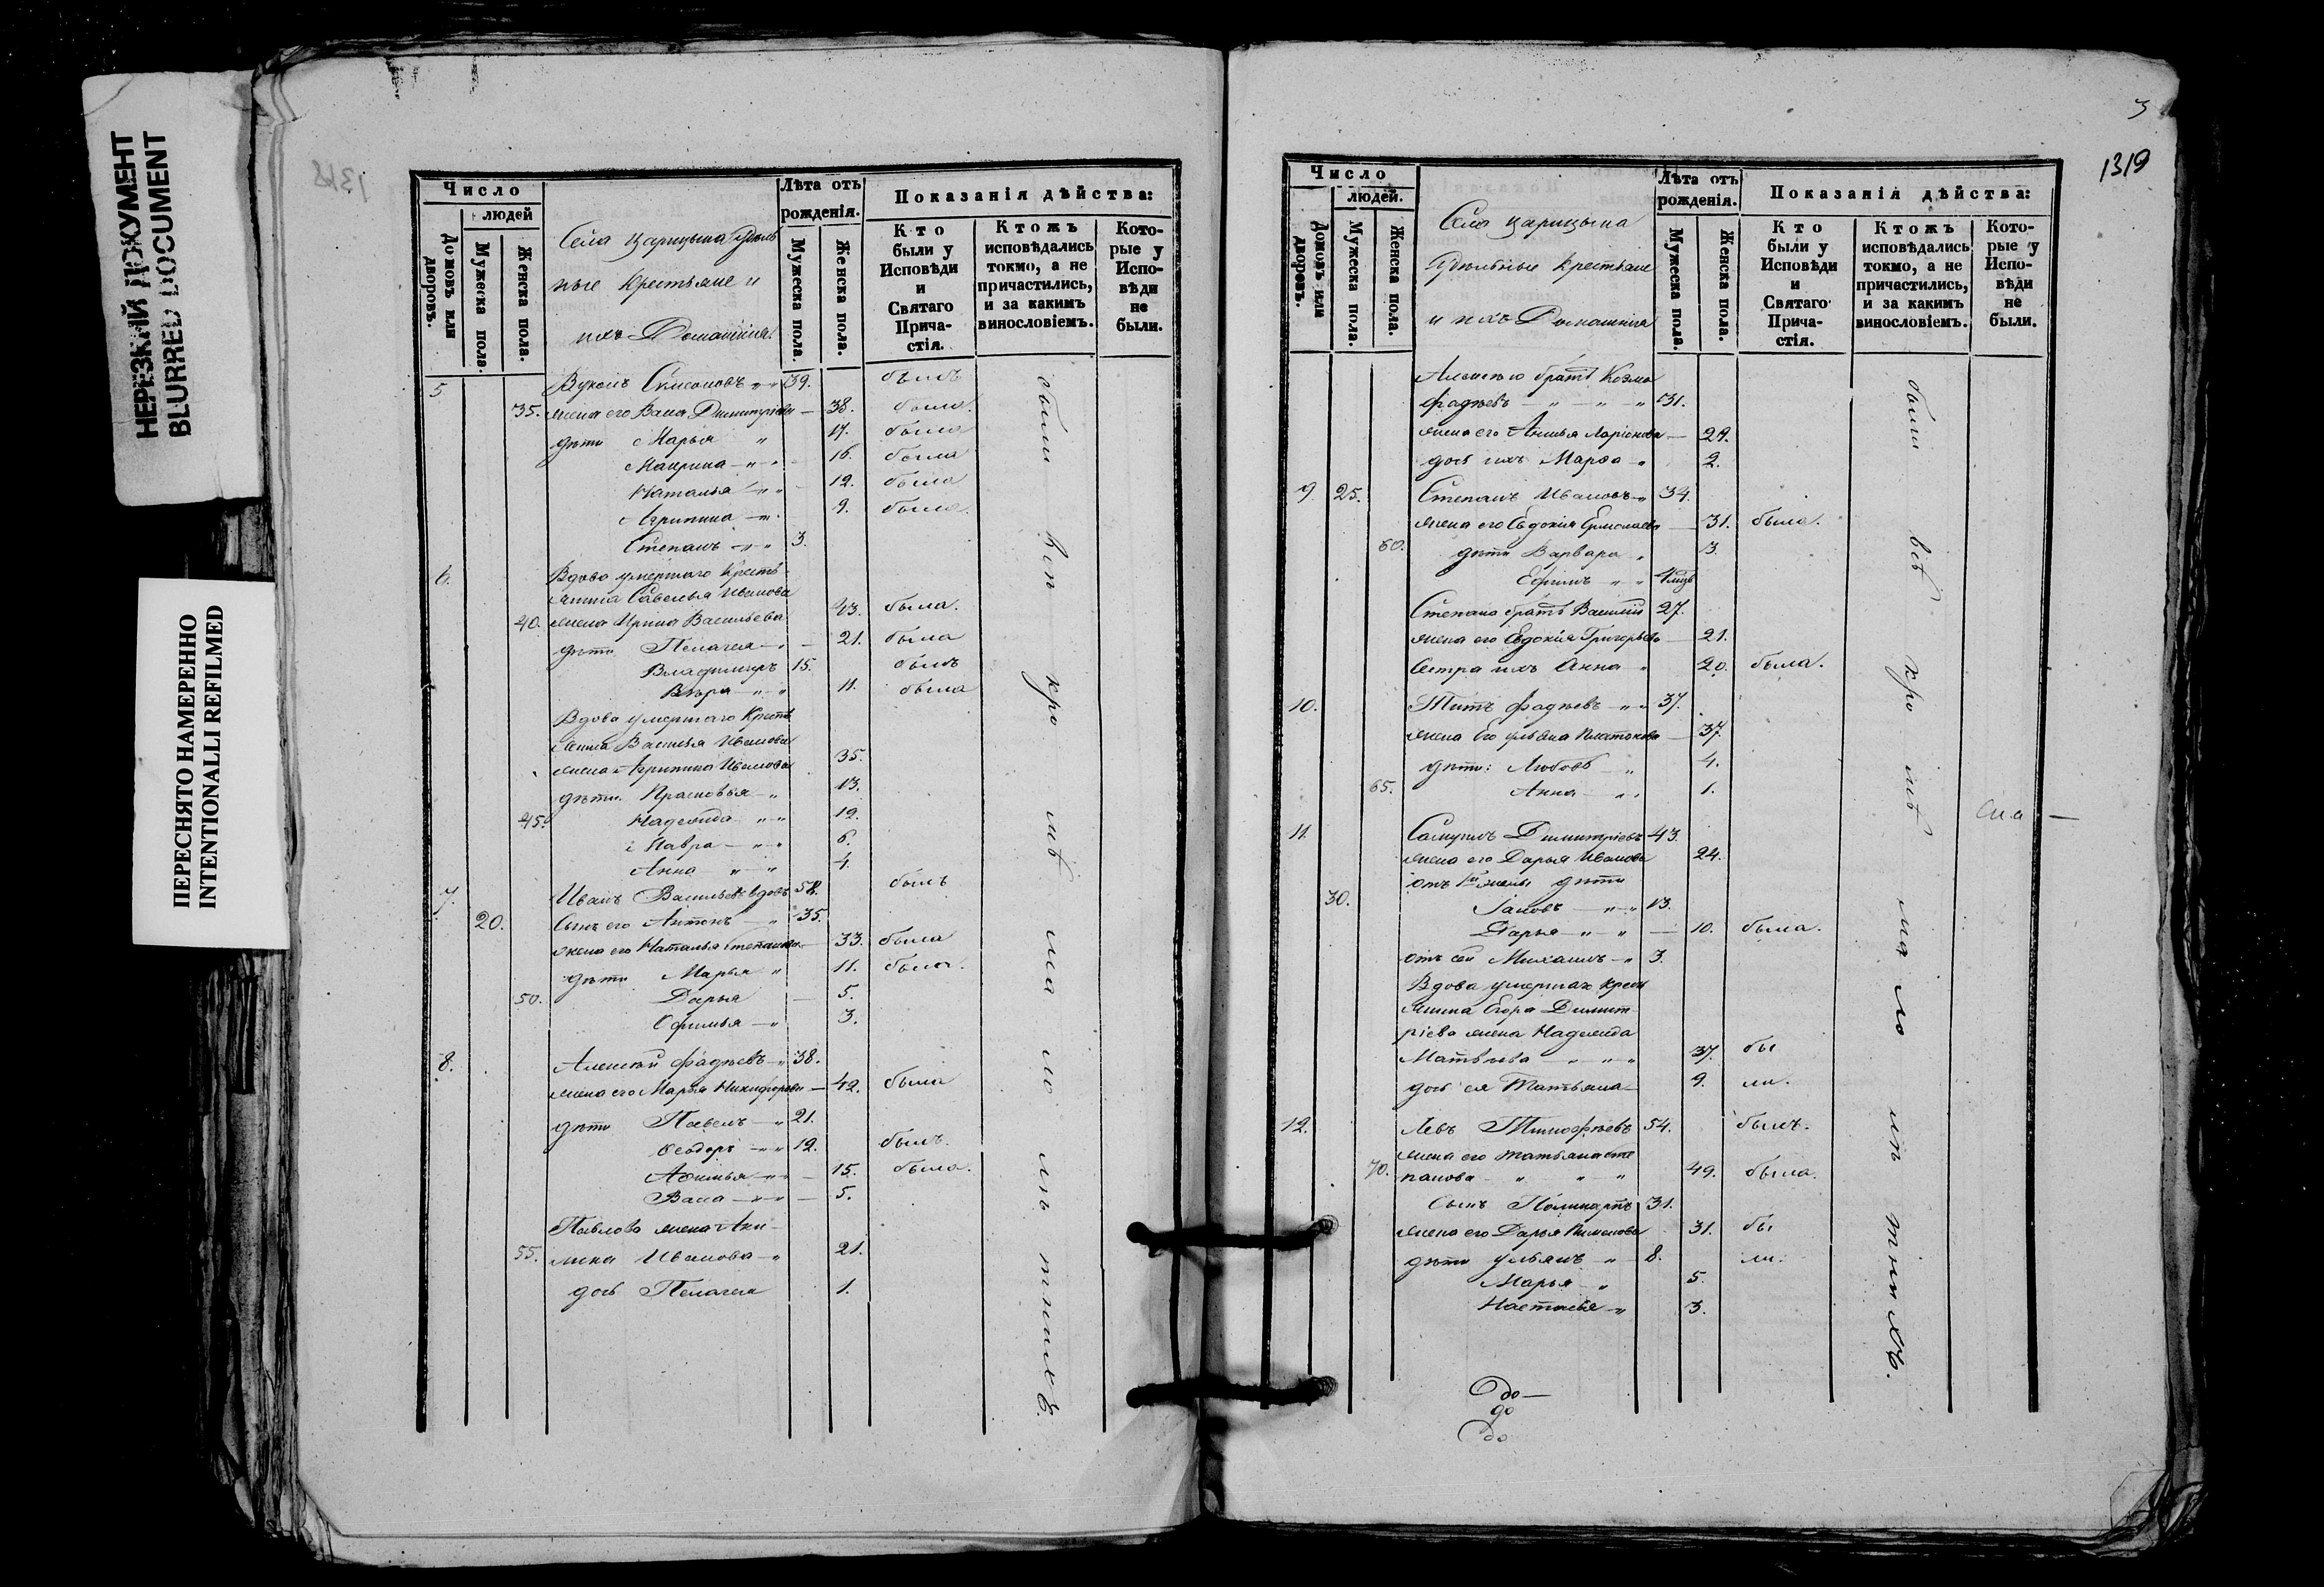 НЕРЕЗКИЙ ДОКУМЕНТ
BLURRED DOCUMENT
ПЕРЕСНЯТО НАМЕРЕННО
INTENTIONALLI REFILMED
Число
людей
Домовъ или дворовъ.
Мужеска пола.
Женска пола.
Села Царицына Удѣль
ные Крестьяне и
ихъ Домашнія.
Лѣта отъ рожденія.
Мужеска пола.
Женска пола.
Показанія дѣйства:
Кто были у Исповѣди и Святаго Причастія.
Ктожъ исповѣдались токмо, а не причастились, и за какимъ винословіемъ.
Которые у Исповѣди не были.
5 Вуколъ 39. былъ
35. жена его Васса Димитріева 38. была.
дѣти Марья 17. была
Маврина 16. была
Наталья 12. была
Агрипина 9. была.
Степанъ 3.
6. Вдова умершаго Кресть
янина Савелья Иванова
40. жена Ирина Васильева 43. была.
дѣти Пелагея 21. была
Владимиръ 15. былъ
Вѣра 11. была
Вдова умершаго Кресть
янина Василья Иванова
жена Агрипина Иванова 35.
дѣти Прасковья 13.
45. Надежда 12.
Мавра 6.
Анна 4.
7. Иванъ Васильевъ вдовъ 58. былъ
20. Сынъ его Антонъ 35.
жена его Наталья Степанова 33. была
дѣти Марья 11. была.
50. Дарья 5.
Офимья 3.
8. Алексѣй Фадѣевъ 38.
жена его Марья Никифорова 42. была
дѣти Павелъ 21.
Ѳеодоръ 12. былъ.
Афимья 15. была.
Васса 5.
Павлова жена Аку
55. лина Иванова 21.
дочь Пелагея 1.
были всѣ кро мѣ ма ло лѣ тнихъ.
3
1319
Число
людей.
Домовъ или дворовъ.
Мужеска пола.
Женска пола.
Село Царицына
Удѣльные Крестьяне
и ихъ Домашнія
Лѣта отъ рожденія.
Мужеска пола.
Женска пола.
Показанія дѣйства:
Кто были у Исповѣди и Святаго Причастія.
Ктожъ исповѣдались токмо, а не причастились, и за какимъ винословіемъ.
Которые у Исповѣди не были.
Алексѣю братъ Козма
Фадѣевъ 31.
жена его Аксинья Ларіонова 29.
дочь ихъ Марѳа 2.
9 25. Степанъ Ивановъ 34.
жена его Евдокія Ермолаева 31. была.
60. дѣти Варвара 3.
Ефимъ
Степана братъ Василій 27.
жена его Евдокія Григорьева 21.
Сестра ихъ Анна 20. была.
10. Титъ Фадѣевъ 37.
жена его Ульяна Платонова 37.
дѣти: Любовь 4.
65. Анна 1.
11. Самуилъ Димитріевъ 43.
жена его Дарья Иванова 24.
отъ 1й жены дѣти
30. Іаковъ 13.
Дарья 10. была.
отъ сей Михаилъ 3.
Вдова умершаго Крест
янина Егора Димит
ріева жена Надежда
Матвѣева 37. бы
дочь ея Татьяна 9. ли.
12. Левъ Тимофѣевъ 54. былъ.
жена его Татьяна Сте
70. панова 49. была.
Сынъ Поликарпъ 31.
жена его Дарья Пименова 31. бы
дѣти Ульянъ 8. ли.
Марья 5.
Настасья 3.
были всѣ кро мѣ ма ло лѣ тнихъ.